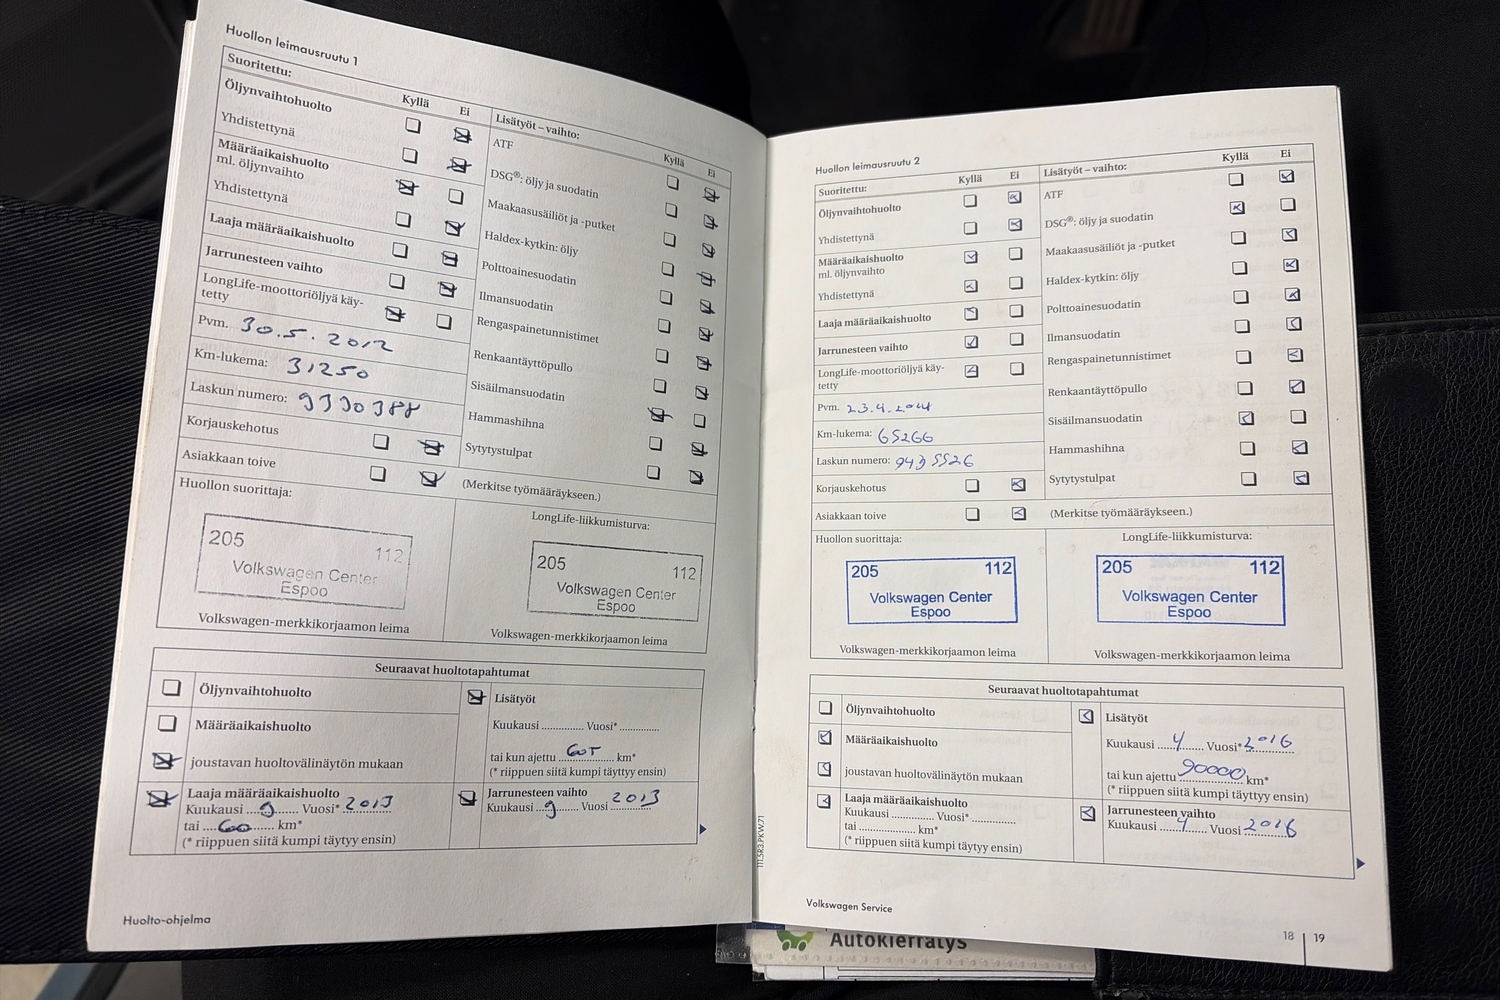 Huollon leimausruutu 1
Suoritettu:
Kyllä Ei
Öljynvaihtohuolto
Yhdistettynä
Määräaikaishuolto
ml. öljynvaihto
Yhdistettynä
Laaja määräaikaishuolto
Jarrunesteen vaihto
LongLife-moottoriöljyä käy-
tetty
Pvm. 30.5.2012
Km-lukema: 31250
Laskun numero: 9330388
Korjauskehotus
Asiakkaan toive
Lisätyöt – vaihto:
Kyllä Ei
ATF
DSG®: öljy ja suodatin
Maakaasusäiliöt ja -putket
Haldex-kytkin: öljy
Polttoainesuodatin
Ilmansuodatin
Rengaspainetunnistimet
Renkaantäyttöpullo
Sisäilmansuodatin
Hammashihna
Sytytystulpat
(Merkitse työmääräykseen.)
Huollon suorittaja:
LongLife-liikkumisturva:
205 112
Volkswagen Center
Espoo
205 112
Volkswagen Center
Espoo
Volkswagen-merkkikorjaamon leima
Volkswagen-merkkikorjaamon leima
Seuraavat huoltotapahtumat
Öljynvaihtohuolto
Määräaikaishuolto
joustavan huoltovälinäytön mukaan
Laaja määräaikaishuolto
Kuukausi ...9... Vuosi* 2013
tai ...60... km*
(* riippuen siitä kumpi täytyy ensin)
Lisätyöt
Kuukausi ............. Vuosi* .............
tai kun ajettu ............. km*
(* riippuen siitä kumpi täyttyy ensin)
Jarrunesteen vaihto
Kuukausi ...9... Vuosi 2013
Huolto-ohjelma
Huollon leimausruutu 2
Suoritettu:
Kyllä Ei
Öljynvaihtohuolto
Yhdistettynä
Määräaikaishuolto
ml. öljynvaihto
Yhdistettynä
Laaja määräaikaishuolto
Jarrunesteen vaihto
LongLife-moottoriöljyä käy-
tetty
Pvm. 23.4.2014
Km-lukema: 65266
Laskun numero: 9435526
Korjauskehotus
Asiakkaan toive
Lisätyöt – vaihto:
Kyllä Ei
ATF
DSG®: öljy ja suodatin
Maakaasusäiliöt ja -putket
Haldex-kytkin: öljy
Polttoainesuodatin
Ilmansuodatin
Rengaspainetunnistimet
Renkaantäyttöpullo
Sisäilmansuodatin
Hammashihna
Sytytystulpat
(Merkitse työmääräykseen.)
Huollon suorittaja:
LongLife-liikkumisturva:
205 112
Volkswagen Center
Espoo
205 112
Volkswagen Center
Espoo
Volkswagen-merkkikorjaamon leima
Volkswagen-merkkikorjaamon leima
Seuraavat huoltotapahtumat
Öljynvaihtohuolto
Määräaikaishuolto
joustavan huoltovälinäytön mukaan
Laaja määräaikaishuolto
Kuukausi ............. Vuosi* .............
tai ............. km*
(* riippuen siitä kumpi täytyy ensin)
Lisätyöt
Kuukausi ...4... Vuosi* 2016
tai kun ajettu 90000 km*
(* riippuen siitä kumpi täyttyy ensin)
Jarrunesteen vaihto
Kuukausi ...4... Vuosi 2016
111.5R3.PKW.71
Volkswagen Service
18 | 19
Autokierrätys